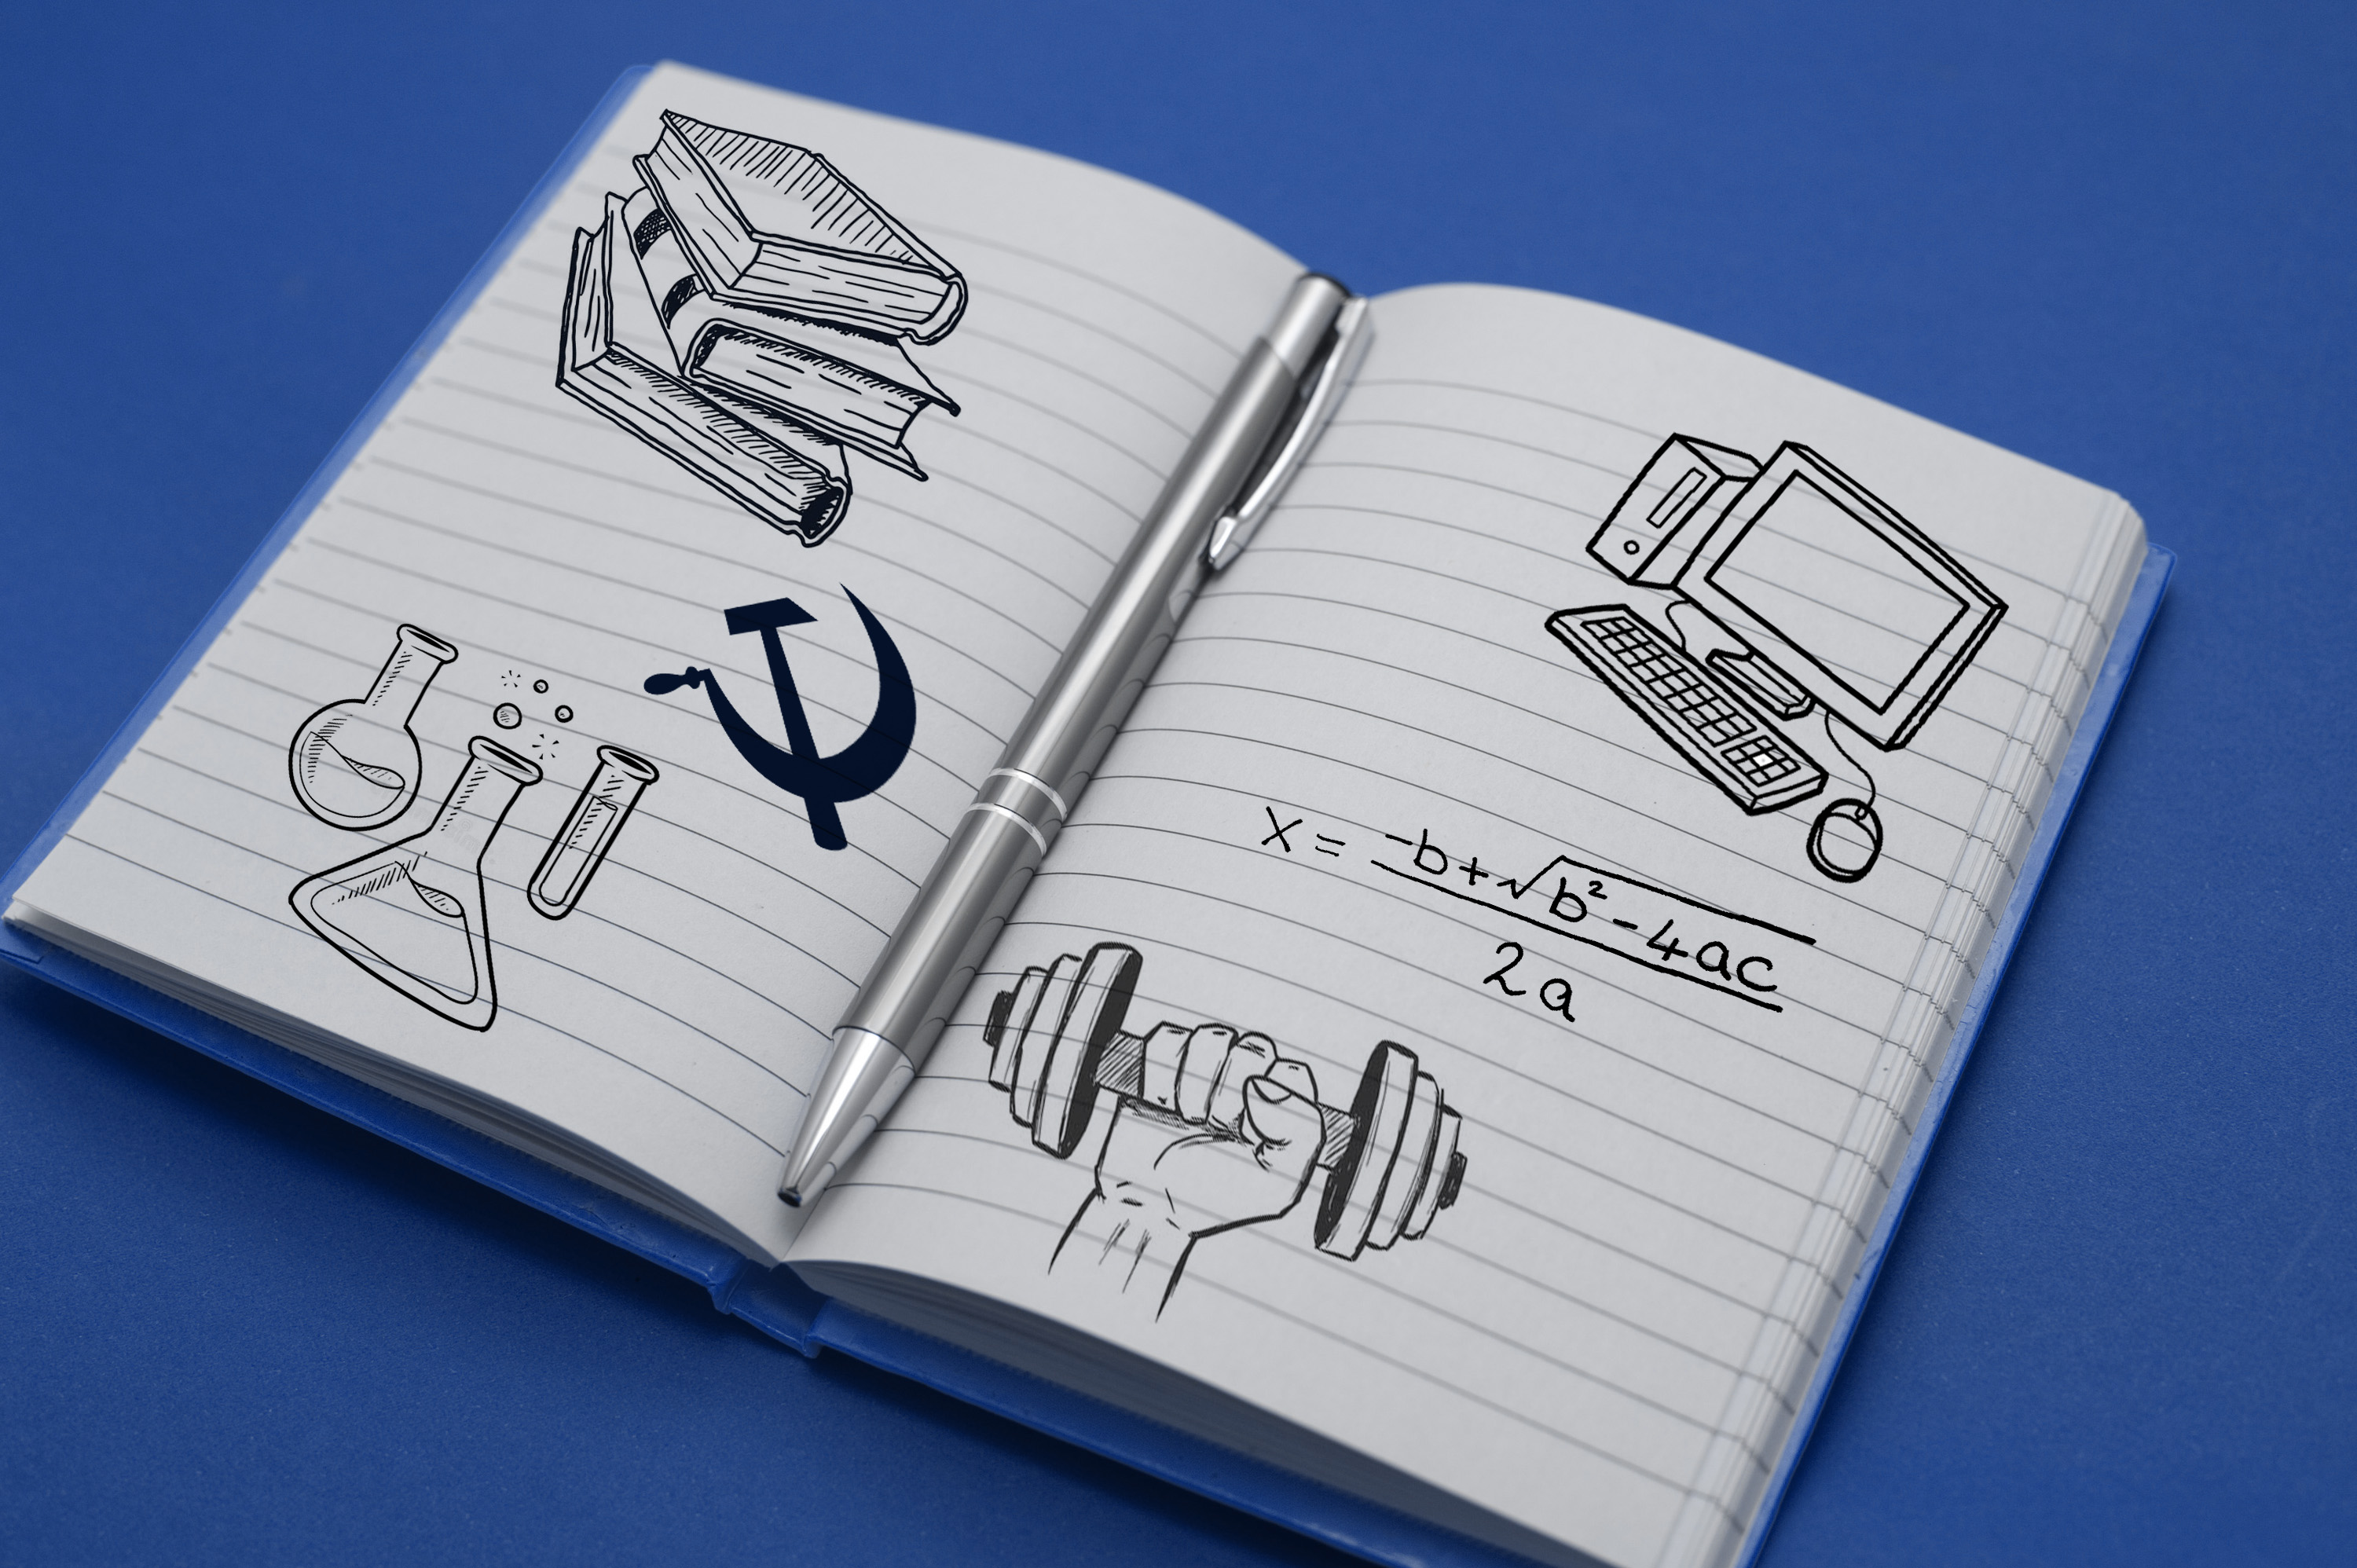 x = -b+√b²-4ac
2a